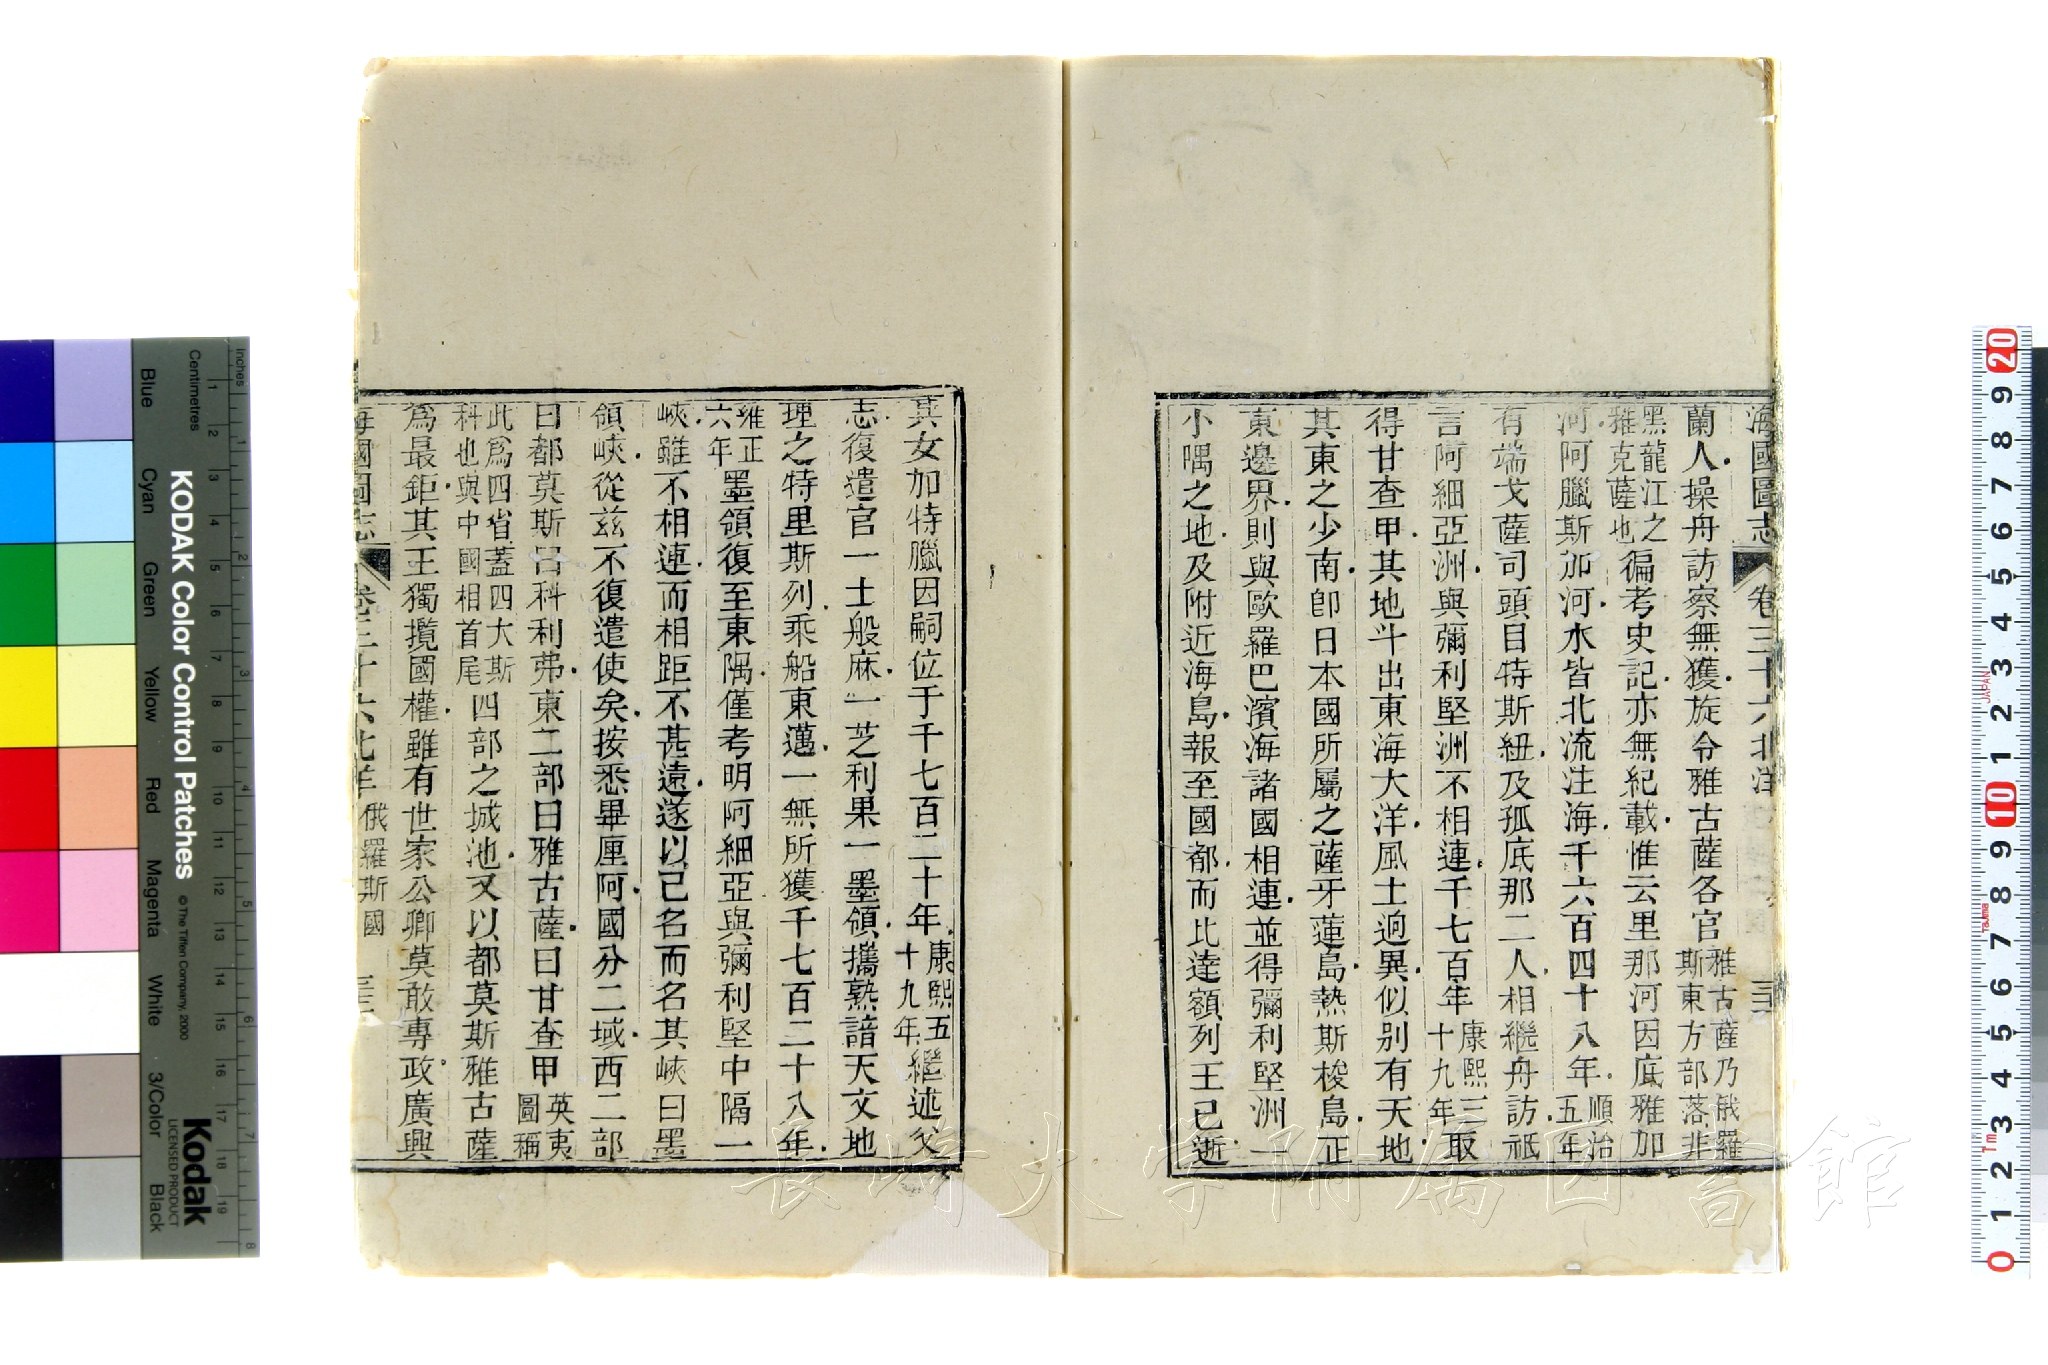 海國圖志 卷三十六北洋
蘭人操舟訪察無獲旋令雅古薩各官雅古薩乃俄羅斯東方部落非
黑龍江之雅克薩也徧考史記亦無紀載惟云里那河因底雅加
河阿臘斯加河水皆北流注海千六百四十八年順治五年
有端戈薩司頭目特斯紐及孤底那二人相繼舟訪祇
言阿細亞洲與彌利堅洲不相連千七百年康熙三十九年取
得甘查甲其地斗出東海大洋風土逈異似别有天地
其東之少南卽日本國所屬之薩牙蓮島熱斯梭島正
東邊界則與歐羅巴濱海諸國相連並得彌利堅洲一
小隅之地及附近海島報至國都而比達額列王已逝
其女加特臘因嗣位于千七百二十年康熙五十九年繼述父
志復遣官一士般麻一芝利果一墨領攜熟諳天文地
理之特里斯列乘船東邁一無所獲千七百二十八年
雍正六年墨領復至東隅僅考明阿細亞與彌利堅中隔一
峽雖不相連而相距不甚遠遂以己名而名其峽曰墨
領峽從兹不復遣使矣按悉畢厘阿國分二域西二部
曰都莫斯曰科利弗東二部曰雅古薩曰甘查甲英夷圖稱
此爲四省蓋四大斯科也與中國相首尾四部之城池又以都莫斯雅古薩
爲最鉅其王獨攬國權雖有世家公卿莫敢專政廣興
海國圖志 卷三十六北洋 俄羅斯國
長崎大学附属図書館
KODAK Color Control Patches
© The Tiffen Company, 2000
Kodak
LICENSED PRODUCT
Inches
Centimetres
Blue
Cyan
Green
Yellow
Red
Magenta
White
3/Color
Black